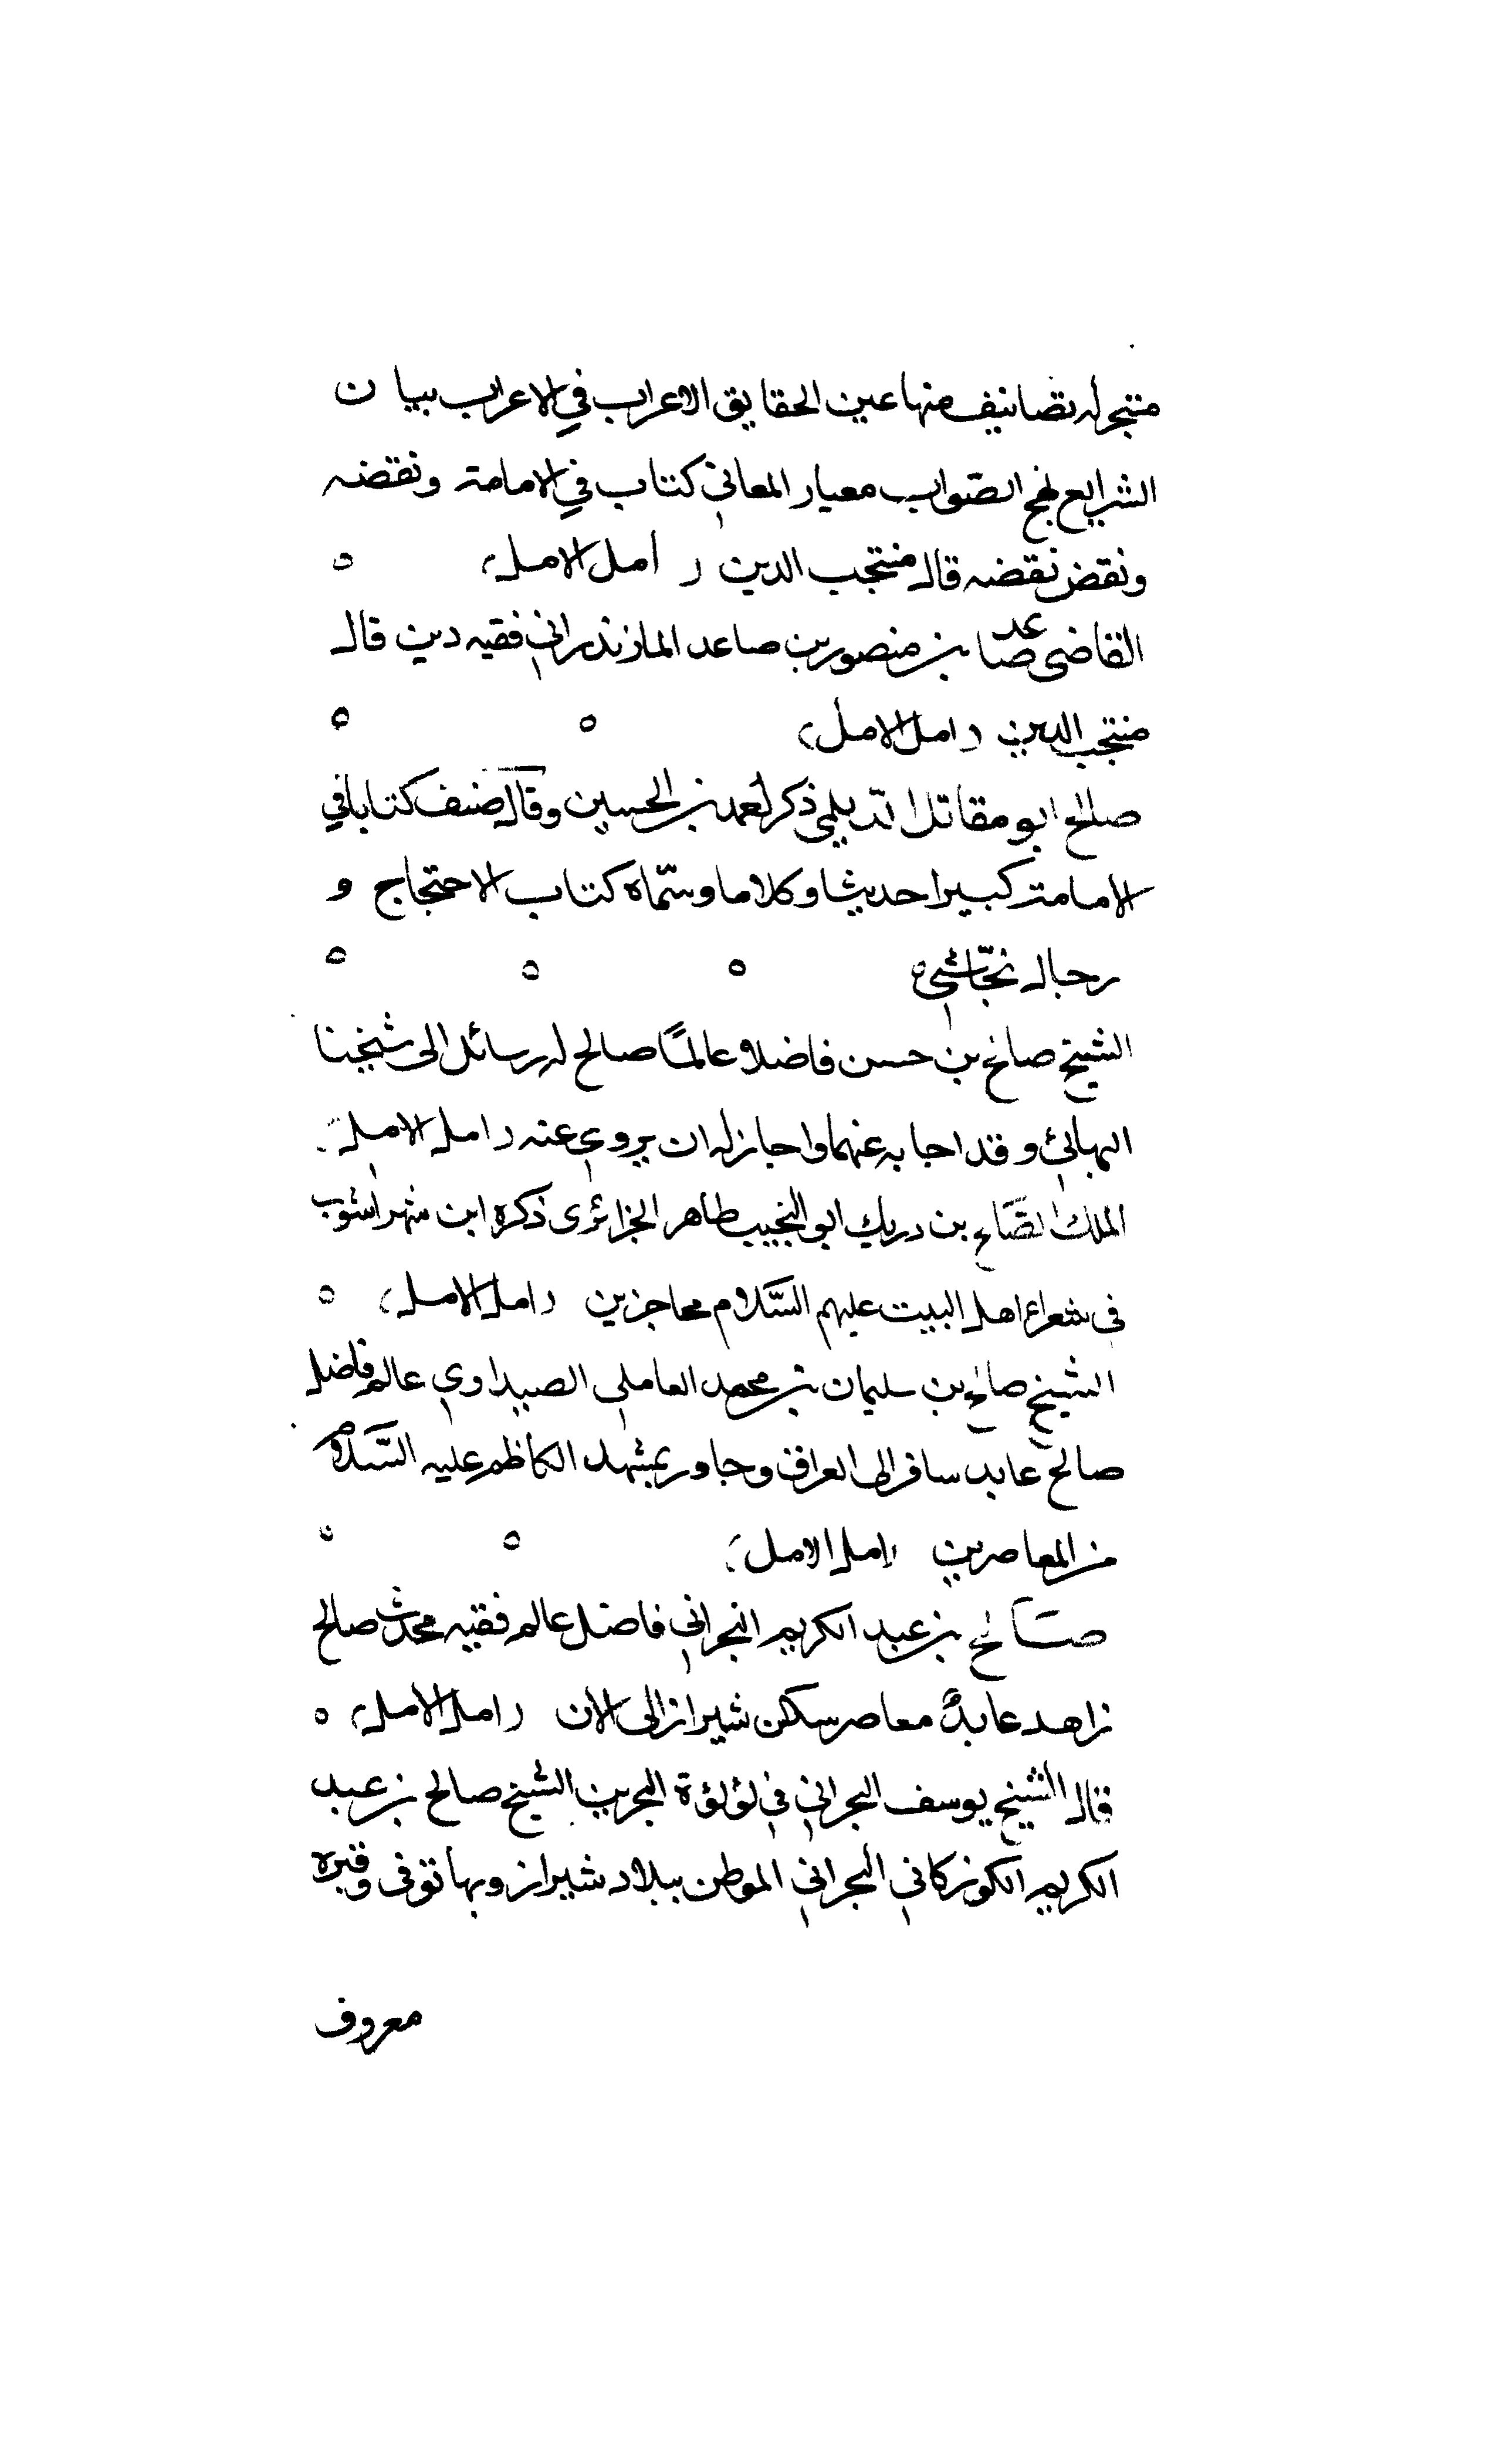 متبحر له تصانيف منها عين الحقايق الاعراب في الاعراب بيان
الشرايع نهج الصّواب معيار المعاني كتاب في الامامة ونقضه
ونقض نقضه قال منتجب الدين ( امل الامل )
القاضي صاعد بن منصور بن صاعد المازندراني فقيه دين قال
منتجب الدين ( امل الامل )
صالح ابو مقاتل الديلمي ذكر احمد بن الحسين وقال صنف كتابا في
الامامة كبيرا حديثا وكلاما وسمّاه كتاب الاحتجاج و
رجال نجّاشي
الشيخ صالح بن حسن فاضلا عالمًا صالح له رسائل الى شيخنا
البهائي وقد اجابه عنهما واجاز له ان يروي عنه ( امل الامل )
الملك الصّالح بن دريك ابو النجيب طاهر الجزائري ذكره ابن شهر اشوب
في شعراء اهل البيت عليهم السّلام مجاهزين ( امل الامل )
الشيخ صالح بن سليمان بن محمد العاملي الصيداوي عالم فاضل
صالح عابد سافر الى العراق وجاور بمشهد الكاظم عليه السّلام
من المعاصرين ( امل الامل )
صالح بن عبد الكريم البحراني فاضل عالم فقيه محدث صالح
زاهد عابدٌ معاصر سكن شيراز الى الان ( امل الامل )
قال الشيخ يوسف البحراني في لؤلؤة البحرين الشيخ صالح بن عبد
الكريم الكوزكاني البحراني الموطن ببلاد شيراز وبها توفى وقبره
معروف